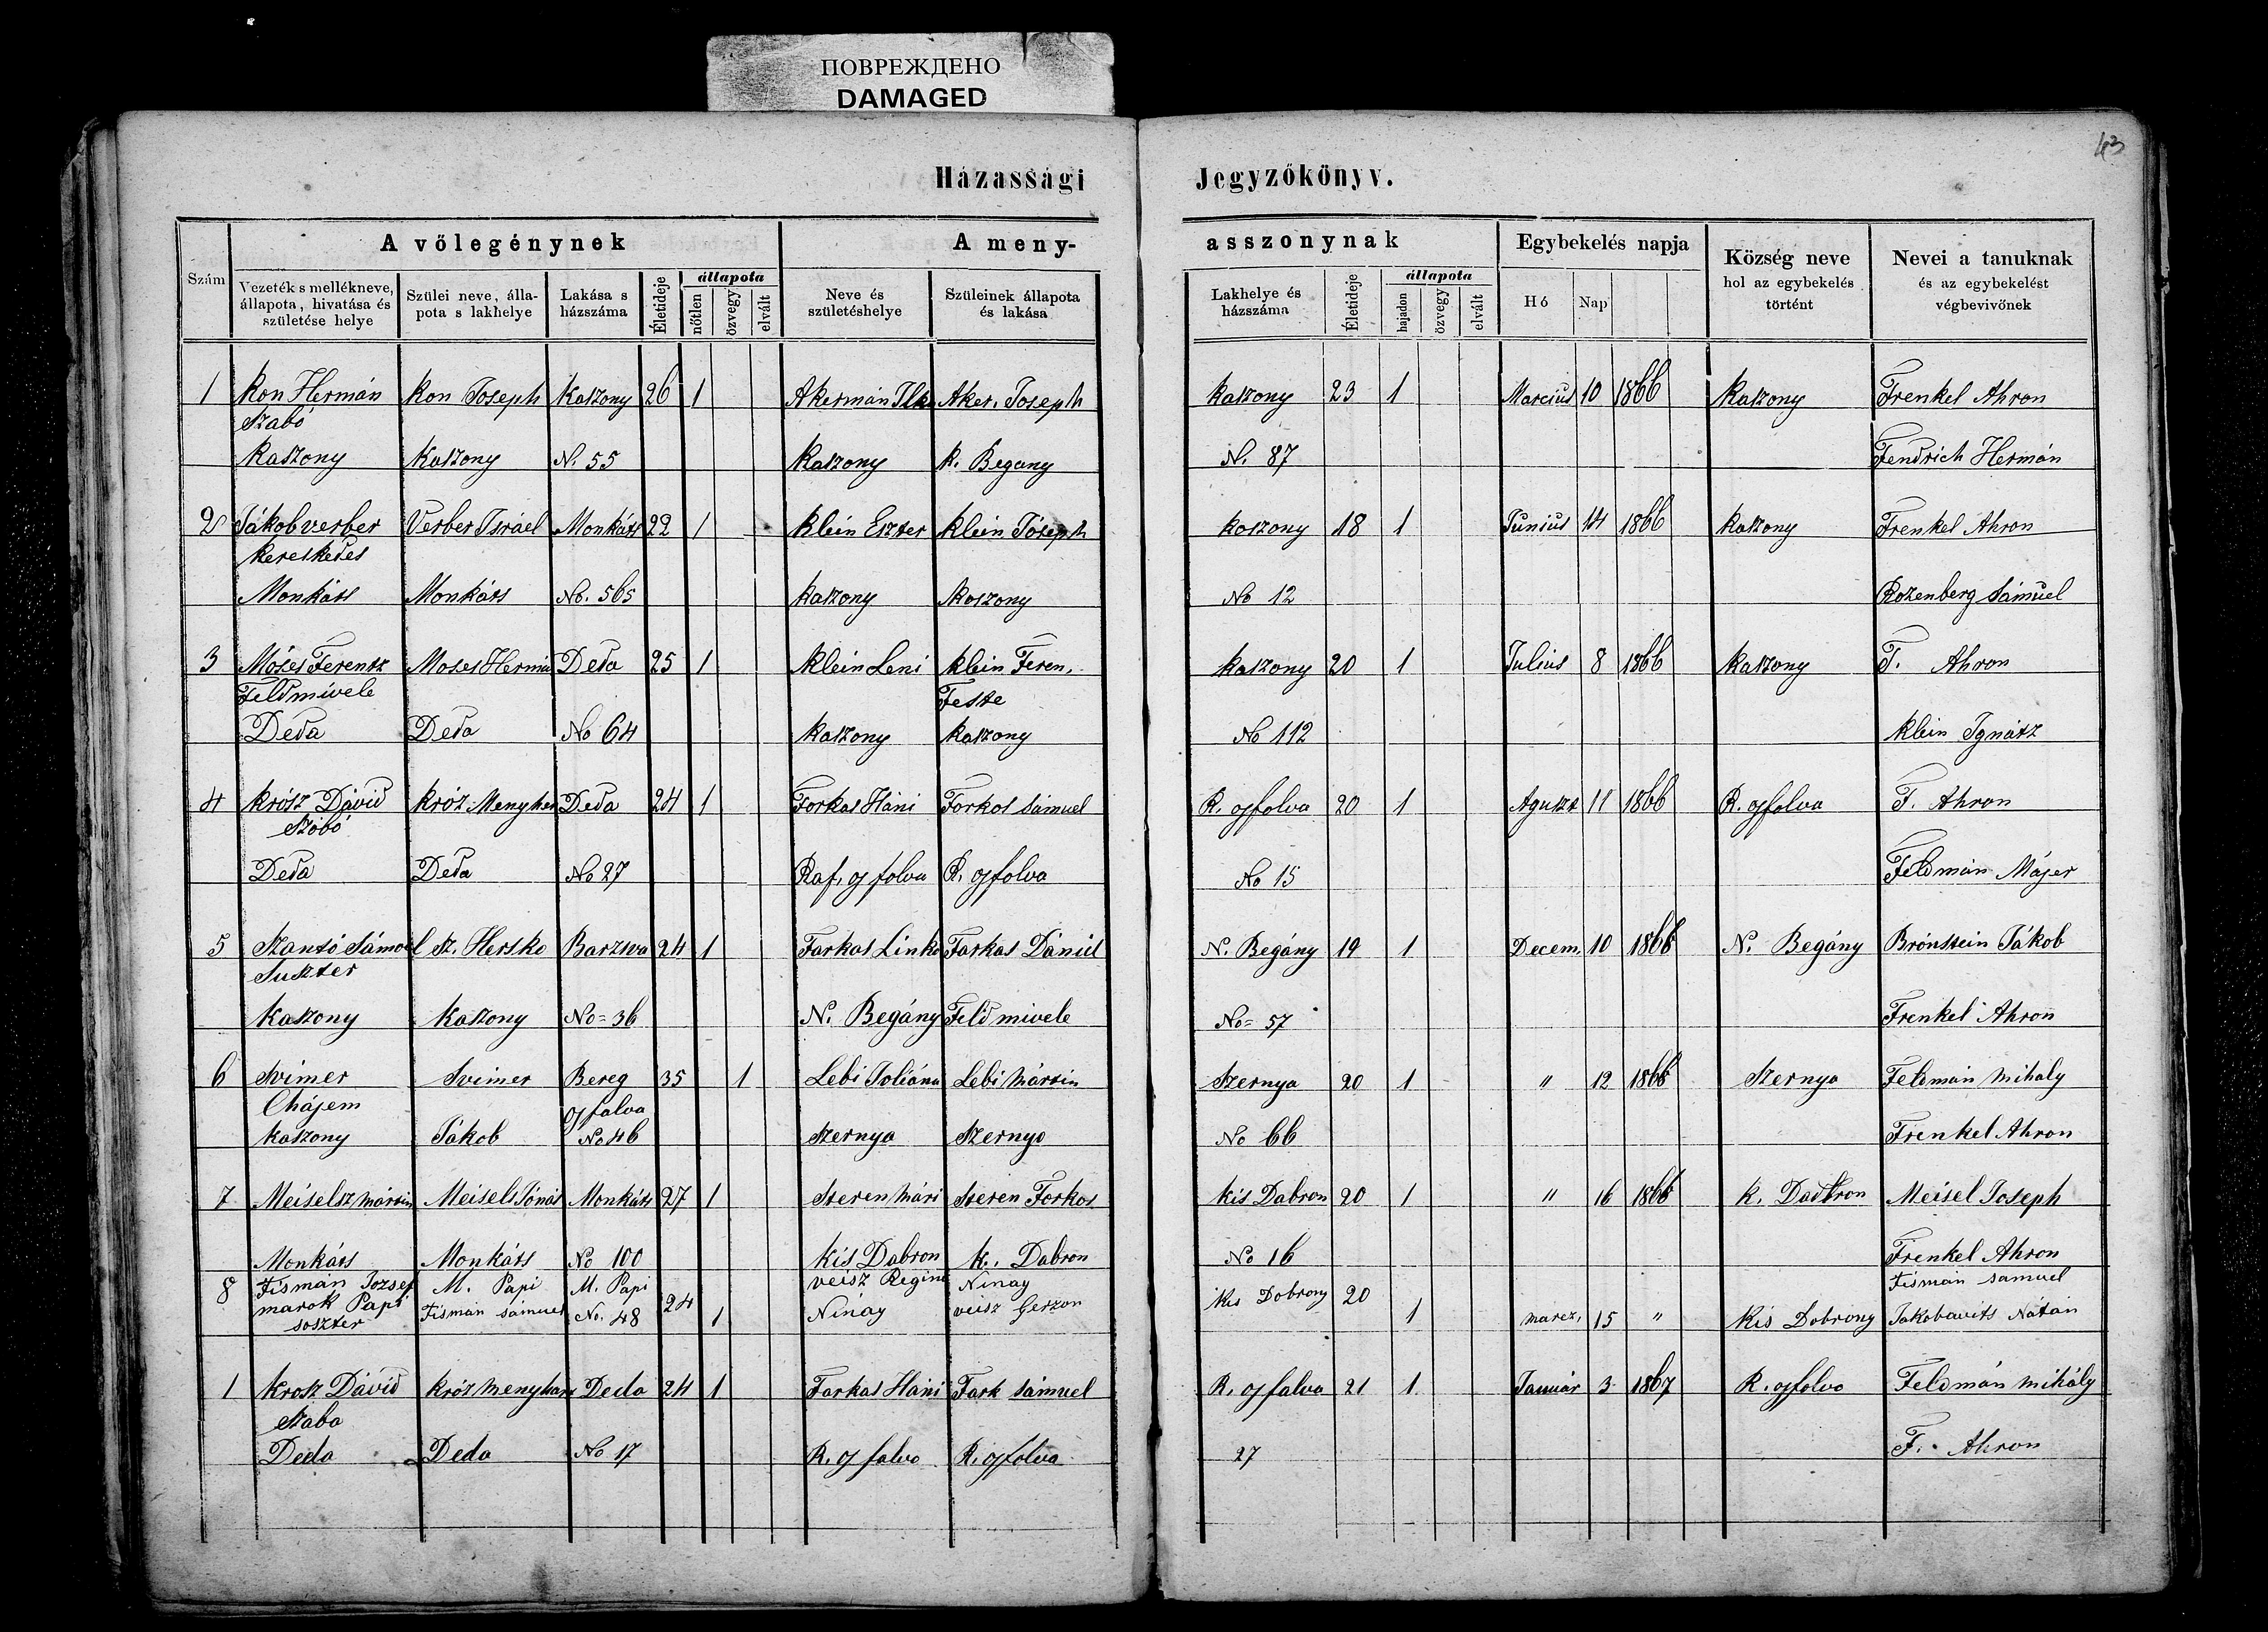 ПОВРЕЖДЕНО
DAMAGED
43
Házassági Jegyzőkönyv.
Szám
A vőlegénynek
Vezeték s mellékneve, állapota, hivatása és születése helye
Szülei neve, állapota s lakhelye
Lakása s házszáma
Életideje
állapota
nőtlen
özvegy
elvált
A menyasszonynak
Neve és születéshelye
Szüleinek állapota és lakása
Lakhelye és házszáma
Életideje
állapota
hajadon
özvegy
elvált
Egybekelés napja
Hó
Nap
Község neve hol az egybekelés történt
Nevei a tanuknak és az egybekelést végbevivőnek
1 Kon Hermán Kon Joseph Kaszony 26 1 Akerman Ilka Aker. Joseph Kaszony 23 1 Marcius 10 1866 Kaszony Frenkel Ahron
Szabó
Kaszony Kaszony N. 55 Kaszony K. Begany N. 87 Fendrich Hermán
2 Jákob verber Verber Israel Monkáts 22 1 Klein Eszter Klein Jóseph Koszony 18 1 Junius 14 1866 Kaszony Frenkel Ahron
Kereskedes
Monkáts Monkáts No. 565 Kaszony Koszony No 12 Rozenberg Sámuel
3 Móses Ferentz Moses Hermán Deda 25 1 Klein Leni Klein Feren. Kaszony 20 1 Julius 8 1866 Kaszony F. Ahron
Feldmivele Feste
Deda Deda No 64 Kaszony Kaszony No 112 Klein Ignátz
4 Krósz Dávid Króz Menyher Deda 24 1 Forkas Háni Forkos Sámuel R. ojfolva 20 1 Aguszt 11 1866 R. ojfolva F. Ahron
Szobó
Deda Deda No 27 Raf. oj folva R. ojfolva No 15 Feldmán Májer
5 Szantó Sámoel Sz. Hersko Barzwa 24 1 Farkas Linka Farkas Dániel N. Begány 19 1 Decem. 10 1866 N. Begány Brónstein Jákob
Suszter
Kaszony Kaszony No = 36 N. Begány Feldmivele No = 57 Frenkel Ahron
6 Svimer Svimer Bereg 35 1 Lebi Joliána Lebi Mártin Szernya 20 1 " 12 1866 Szernya Feldmán Mihaly
Chájem ojfalva
Kaszony Jákob No 46 Szernya Szernyo No 66 Frenkel Ahron
7 Meiselsz Mártin Meisels Jónás Monkáts 27 1 Szeren Mári Szeren Forkos Kis Dabron 20 1 " 16 1866 K. Dadbron Meisel Joseph
Monkáts Monkáts No 100 Kis Dabron K. Dabron No 16 Frenkel Ahron
8 Fismán Jozsef M. Papi M. Papi 24 1 veisz Regina Ninay Kis Dobrony 20 1 marcz. 15 " Kis Dobrony Fismán samuel
marok Papi Fismán samuel No. 48 Ninay veisz Gerzon Jakobavits Nátán
soszter
1 Krosz Dávid Króz Menyhar Deda 24 1 Farkas Háni Fark Sámuel R. ojfalva 21 1 Január 3 1867 R. ojfolvo Feldmán Mihály
Szabo
Deda Deda No 17 R. oj falvo R. ojfolva 27 F. Ahron